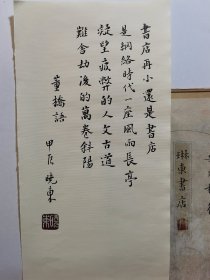 書店再小還是書店
是網絡時代一座風雨長亭
凝望疲弊的人文古道
難舍劫後的萬卷斜陽
董橋語
甲辰 曉東
東書店